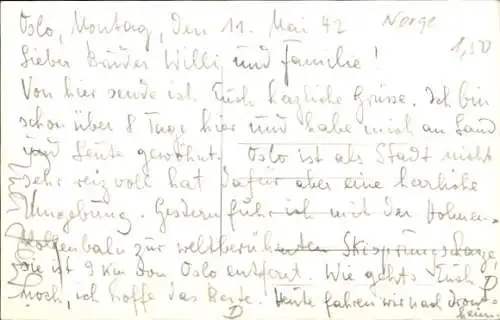 Oslo, Montag, den 11. Mai 42 Norge
1,50
Lieber Bruder Willi und Familie!
Von hier sende ich Euch herzliche Grüsse. Ich bin
schon über 8 Tage hier und habe mich an Land
und Leute gewöhnt. Oslo ist als Stadt nicht
sehr reizvoll hat dafür aber eine herrliche
Umgebung. Gestern fuhr ich mit der Holmen-
kollenbahn zur weltberühmten Skisprungschanze
sie ist 9 km von Oslo entfernt. Wie gehts Euch
noch, ich hoffe das Beste. Heute fahren wir nach Dron
heim.
D